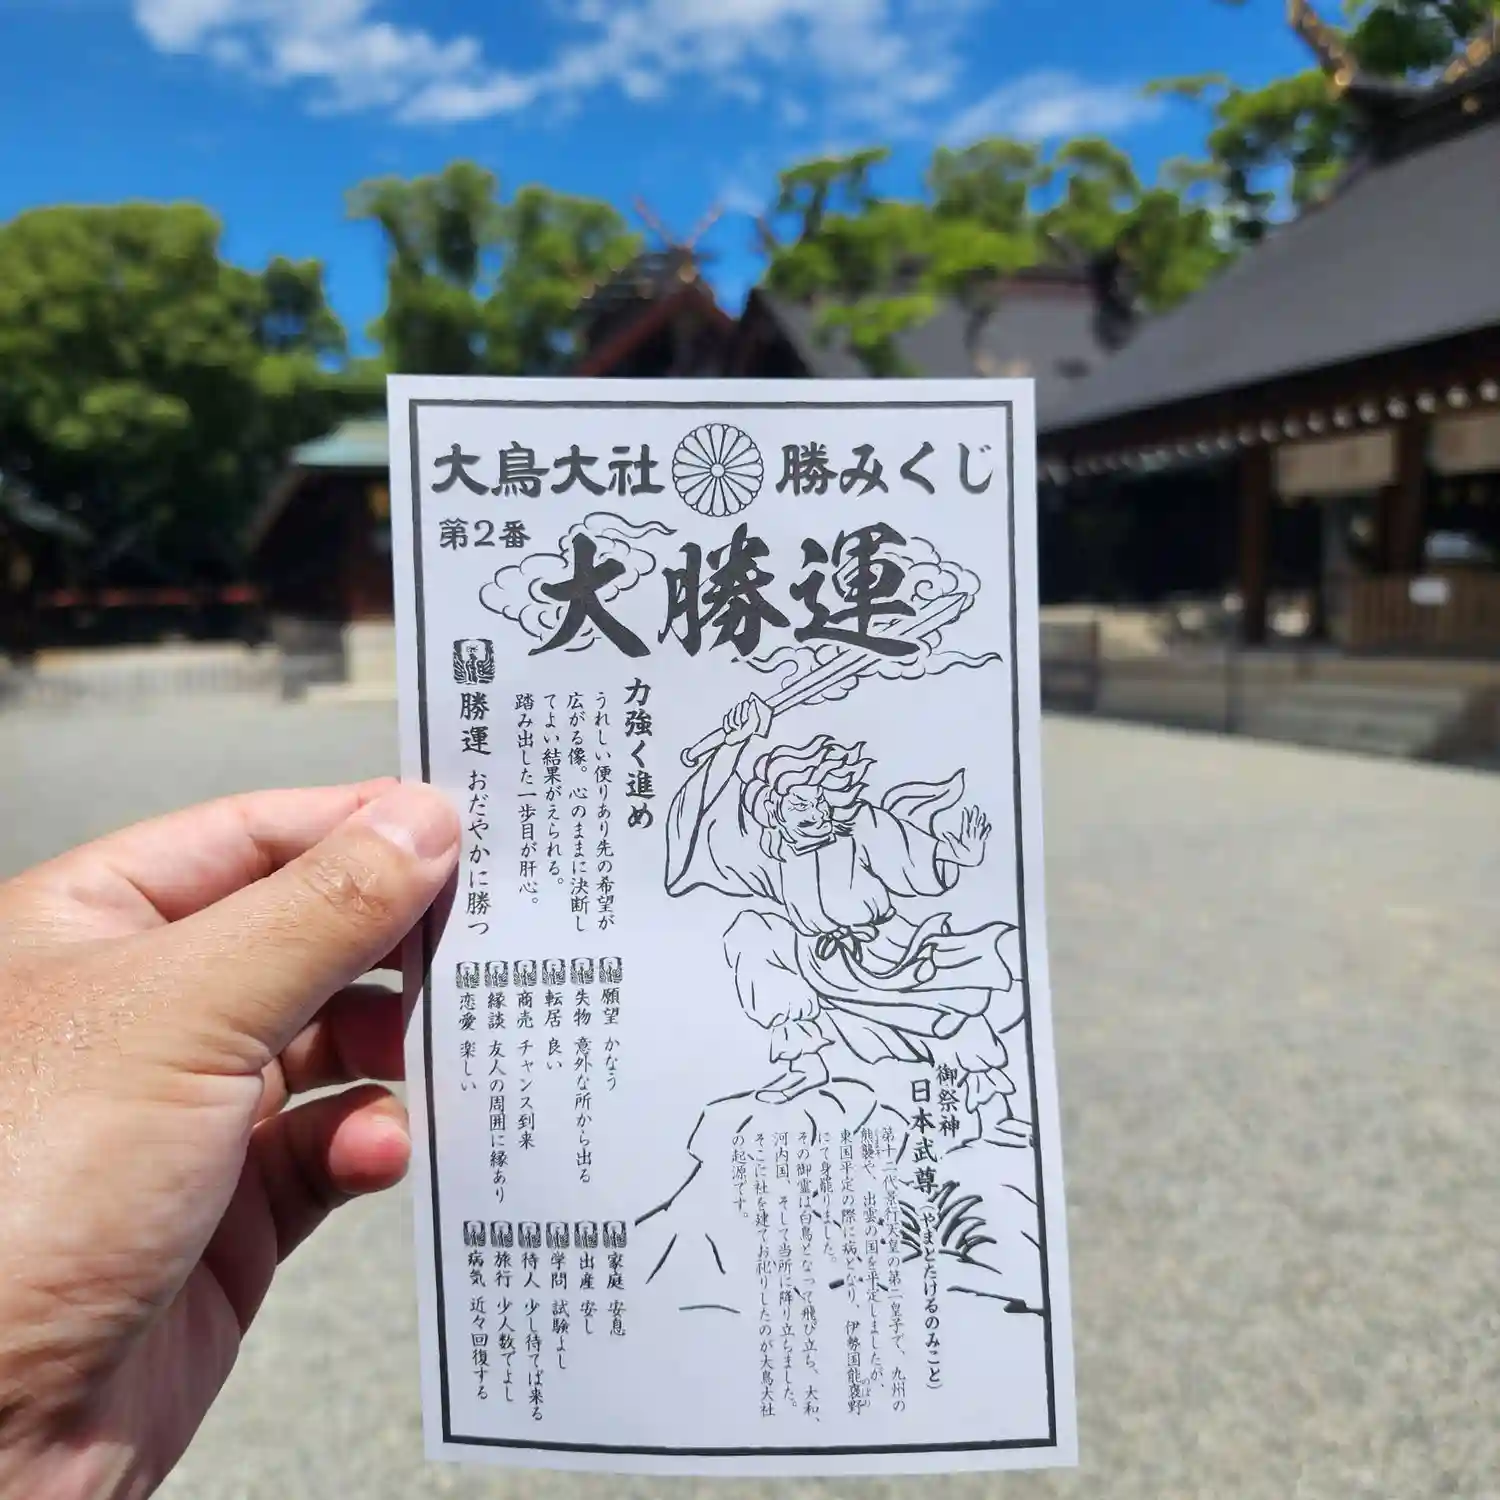 大鳥大社 勝みくじ
第2番
大勝運
力強く進め
うれしい便りあり先の希望が
広がる像。心のままに決断し
てよい結果がえられる。
踏み出した一歩目が肝心。
勝運 おだやかに勝つ
願望 かなう
失物 意外な所から出る
転居 良い
商売 チャンス到来
縁談 友人の周囲に縁あり
恋愛 楽しい
家庭 安息
出産 安し
学問 試験よし
待人 少し待てば来る
旅行 少人数でよし
病気 近々回復する
御祭神
日本武尊(やまとたけるのみこと)
第十二代景行天皇の第二皇子で、九州の
熊襲や、出雲の国を平定しましたが、
東国平定の際に病となり、伊勢国能褒野
にて身罷りました。
その御霊は白鳥となって飛び立ち、大和、
河内国、そして当所に降り立ちました。
そこに社を建てお祀りしたのが大鳥大社
の起源です。